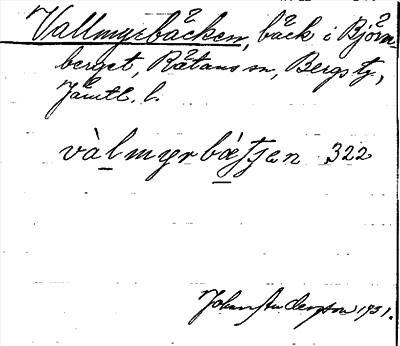 Vallmyrbäcken, bäck i Björn-
berget, Rätans sn, Bergs tg,
Jämtl. l.
vàlmyrbètjen 322
Johan Anderson 1931.